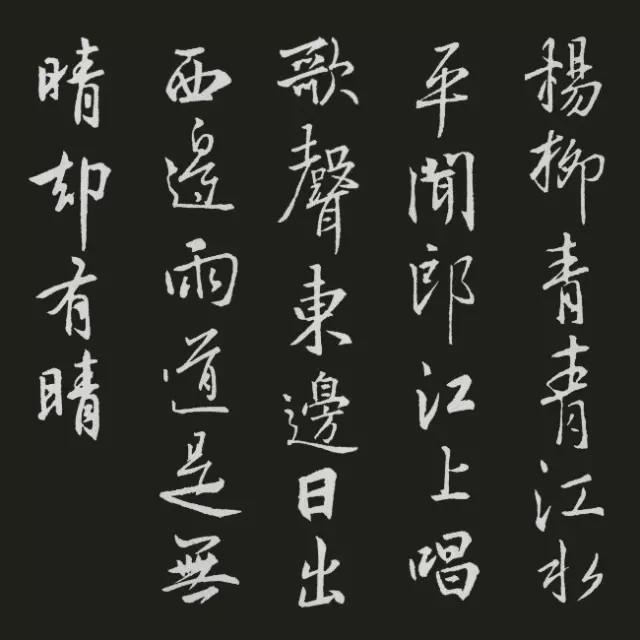 楊柳青青江水
平聞郎江上唱
歌聲東邊日出
西邊雨道是無
晴却有晴